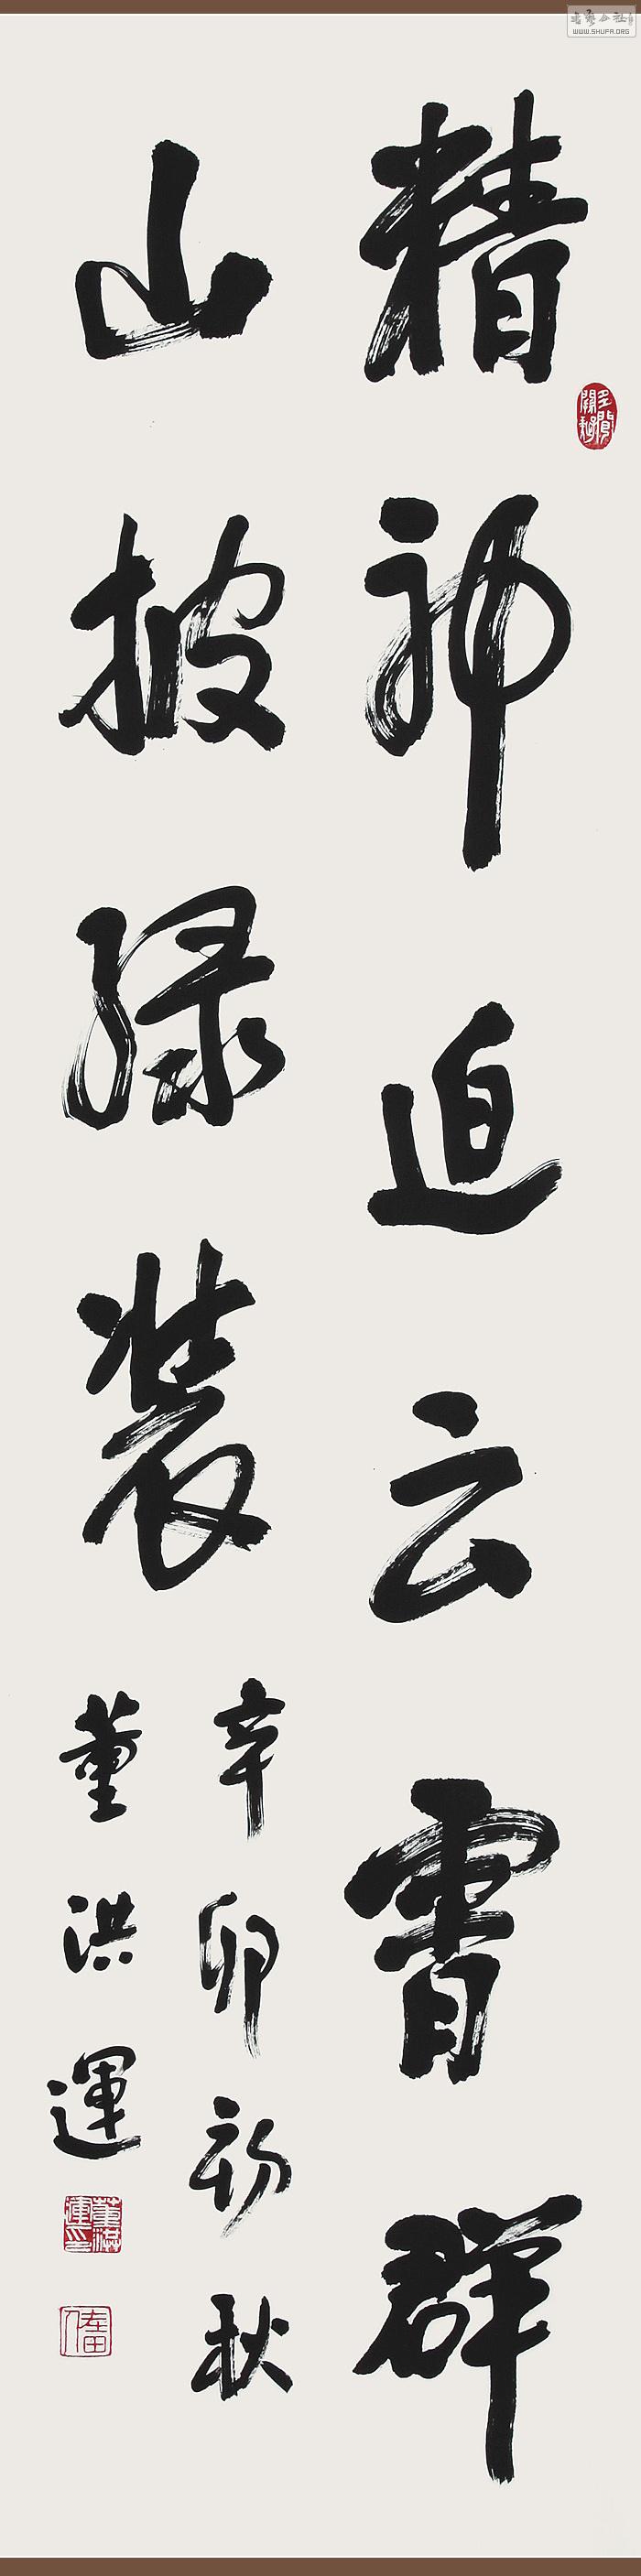 精神迫云霄群
山披绿装
辛卯初秋
董洪運
WWW.SHUFA.ORG